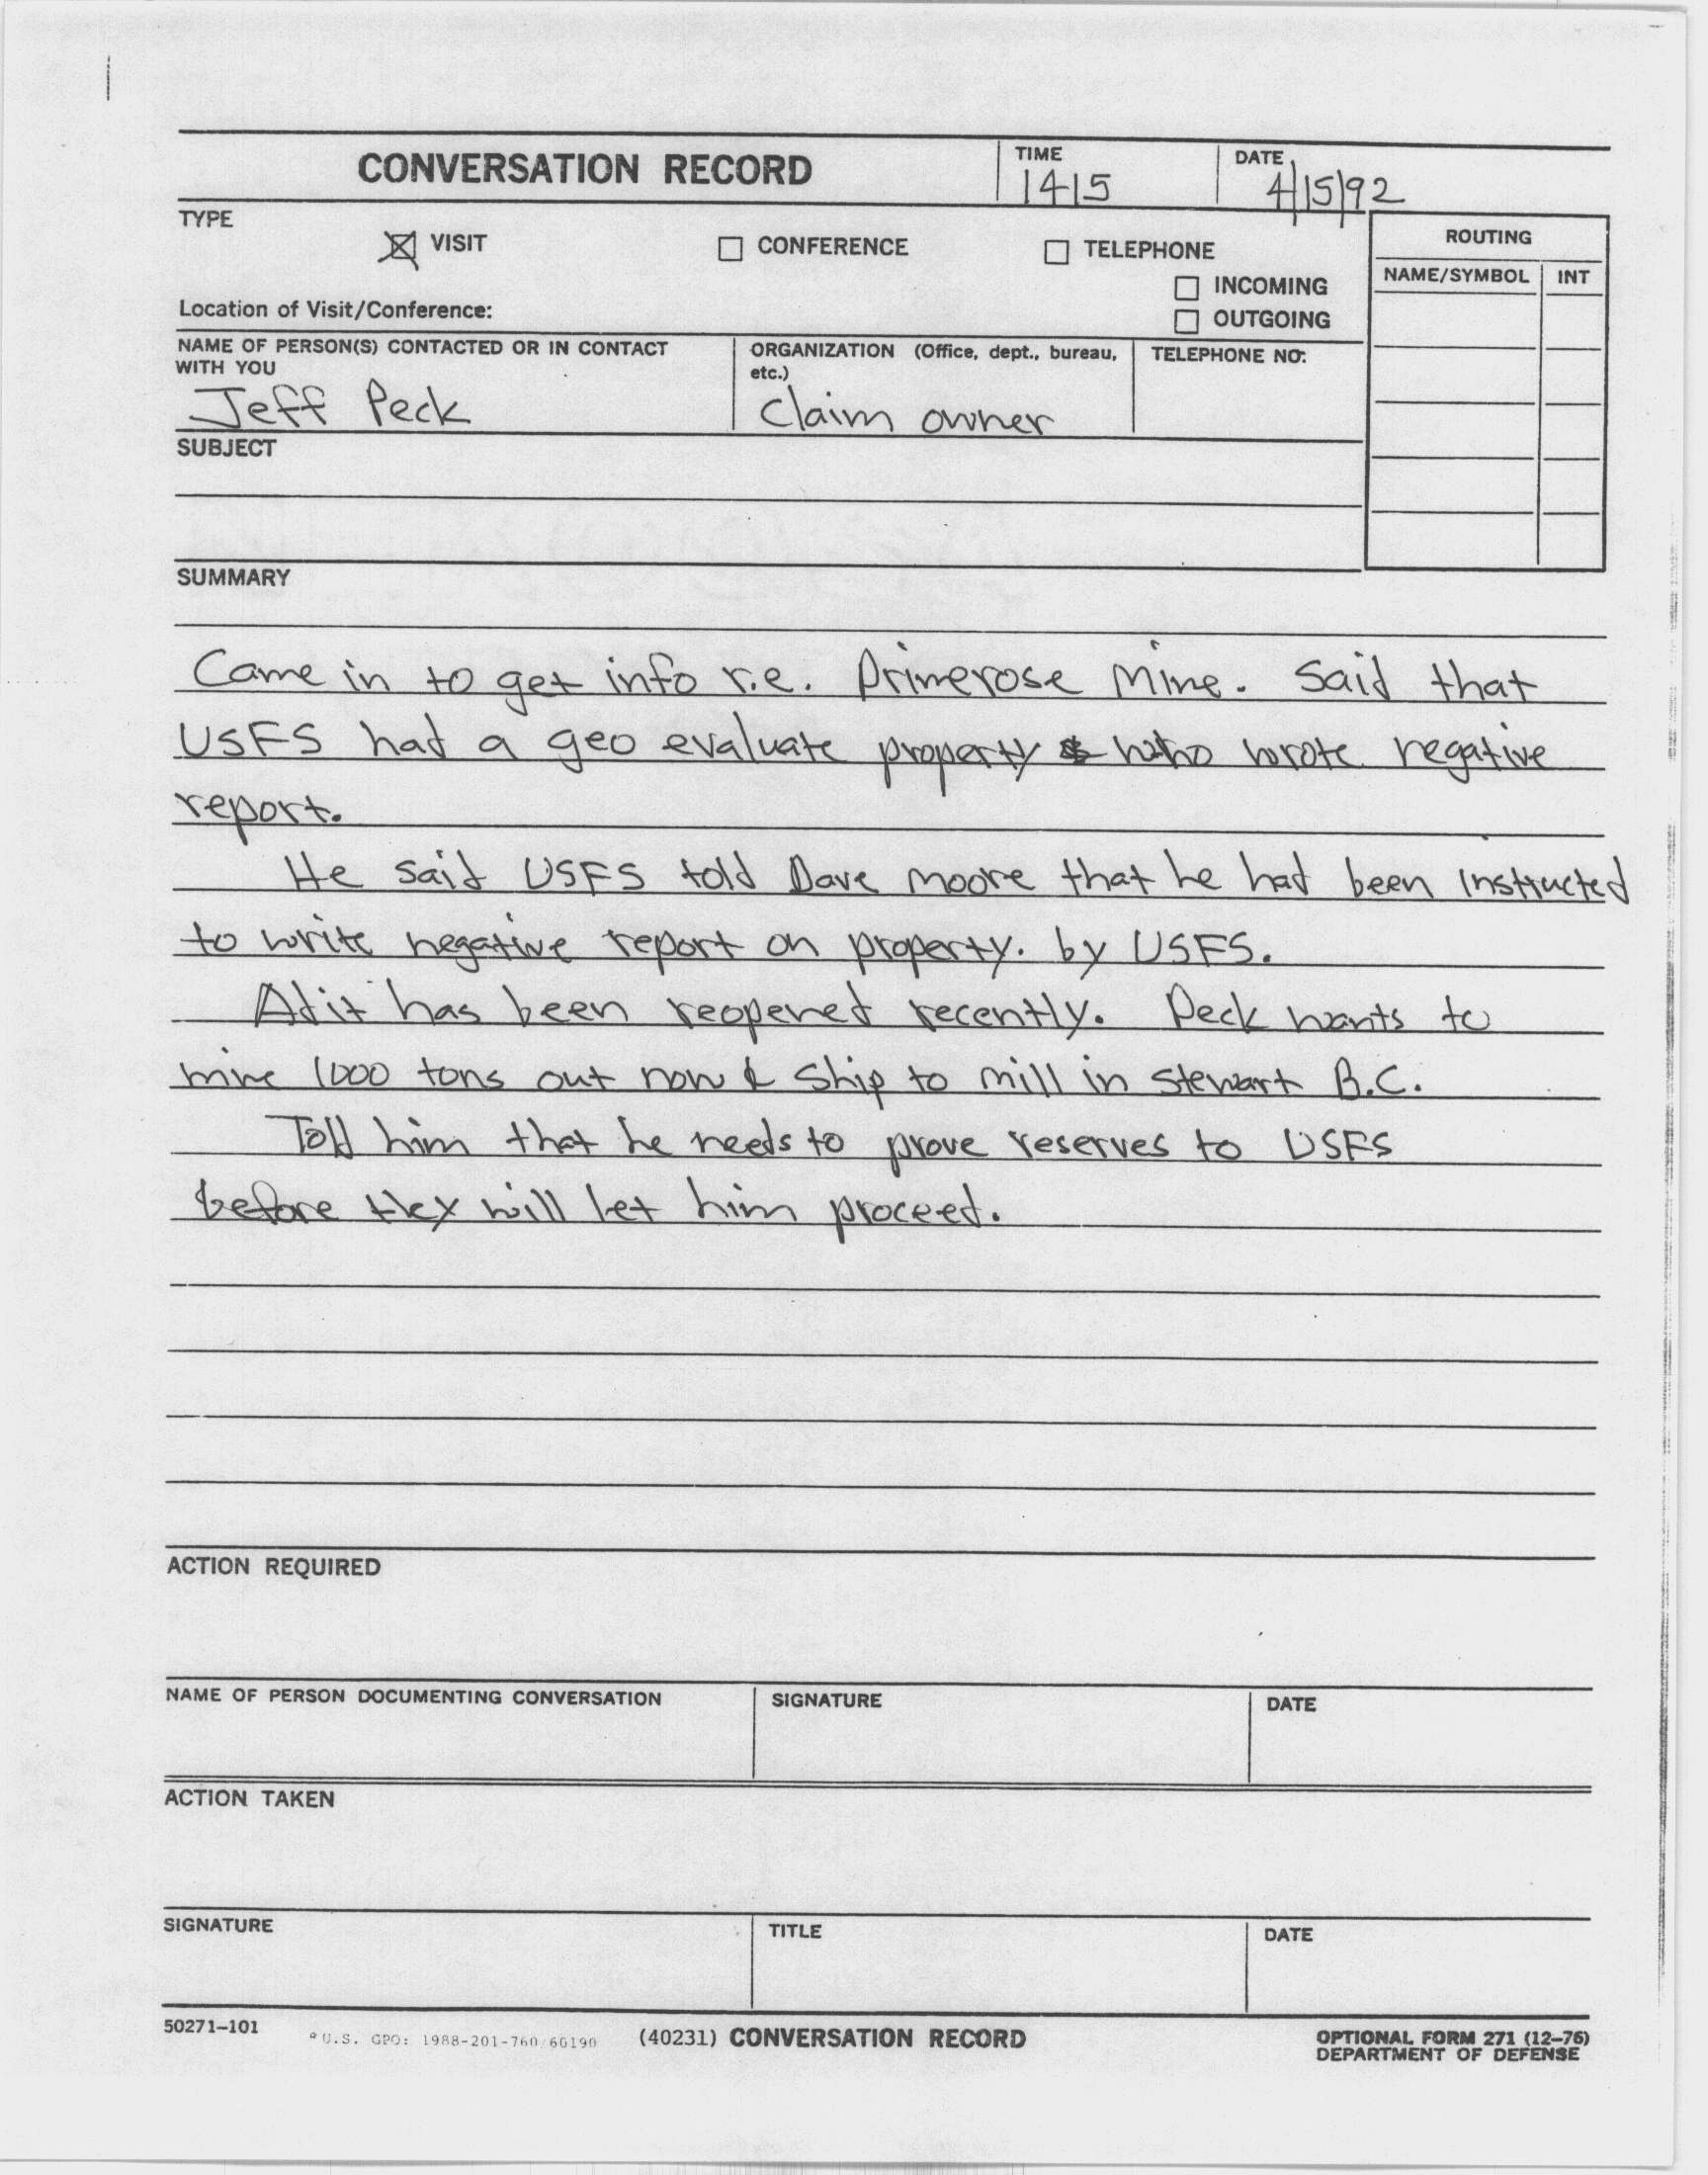 CONVERSATION RECORD
TIME
1415
DATE
4/15/92
TYPE
VISIT
CONFERENCE
TELEPHONE
INCOMING
OUTGOING
ROUTING
NAME/SYMBOL
INT
Location of Visit/Conference:
NAME OF PERSON(S) CONTACTED OR IN CONTACT
WITH YOU
Jeff Peck
ORGANIZATION (Office, dept., bureau,
etc.)
Claim owner
TELEPHONE NO:
SUBJECT
SUMMARY
Came in to get info r.e. Primerose Mine. Said that
USFS had a geo evaluate property who wrote negative
report.
He said USFS told Dave Moore that he had been instructed
to write negative report on property. by USFS.
Adit has been reopened recently. Peck wants to
mine 1000 tons out now & ship to mill in Stewart B.C.
Told him that he needs to prove reserves to USFS
before they will let him proceed.
ACTION REQUIRED
NAME OF PERSON DOCUMENTING CONVERSATION
SIGNATURE
DATE
ACTION TAKEN
SIGNATURE
TITLE
DATE
50271-101
* U.S. GPO: 1988-201-760/60190
(40231) CONVERSATION RECORD
OPTIONAL FORM 271 (12-76)
DEPARTMENT OF DEFENSE